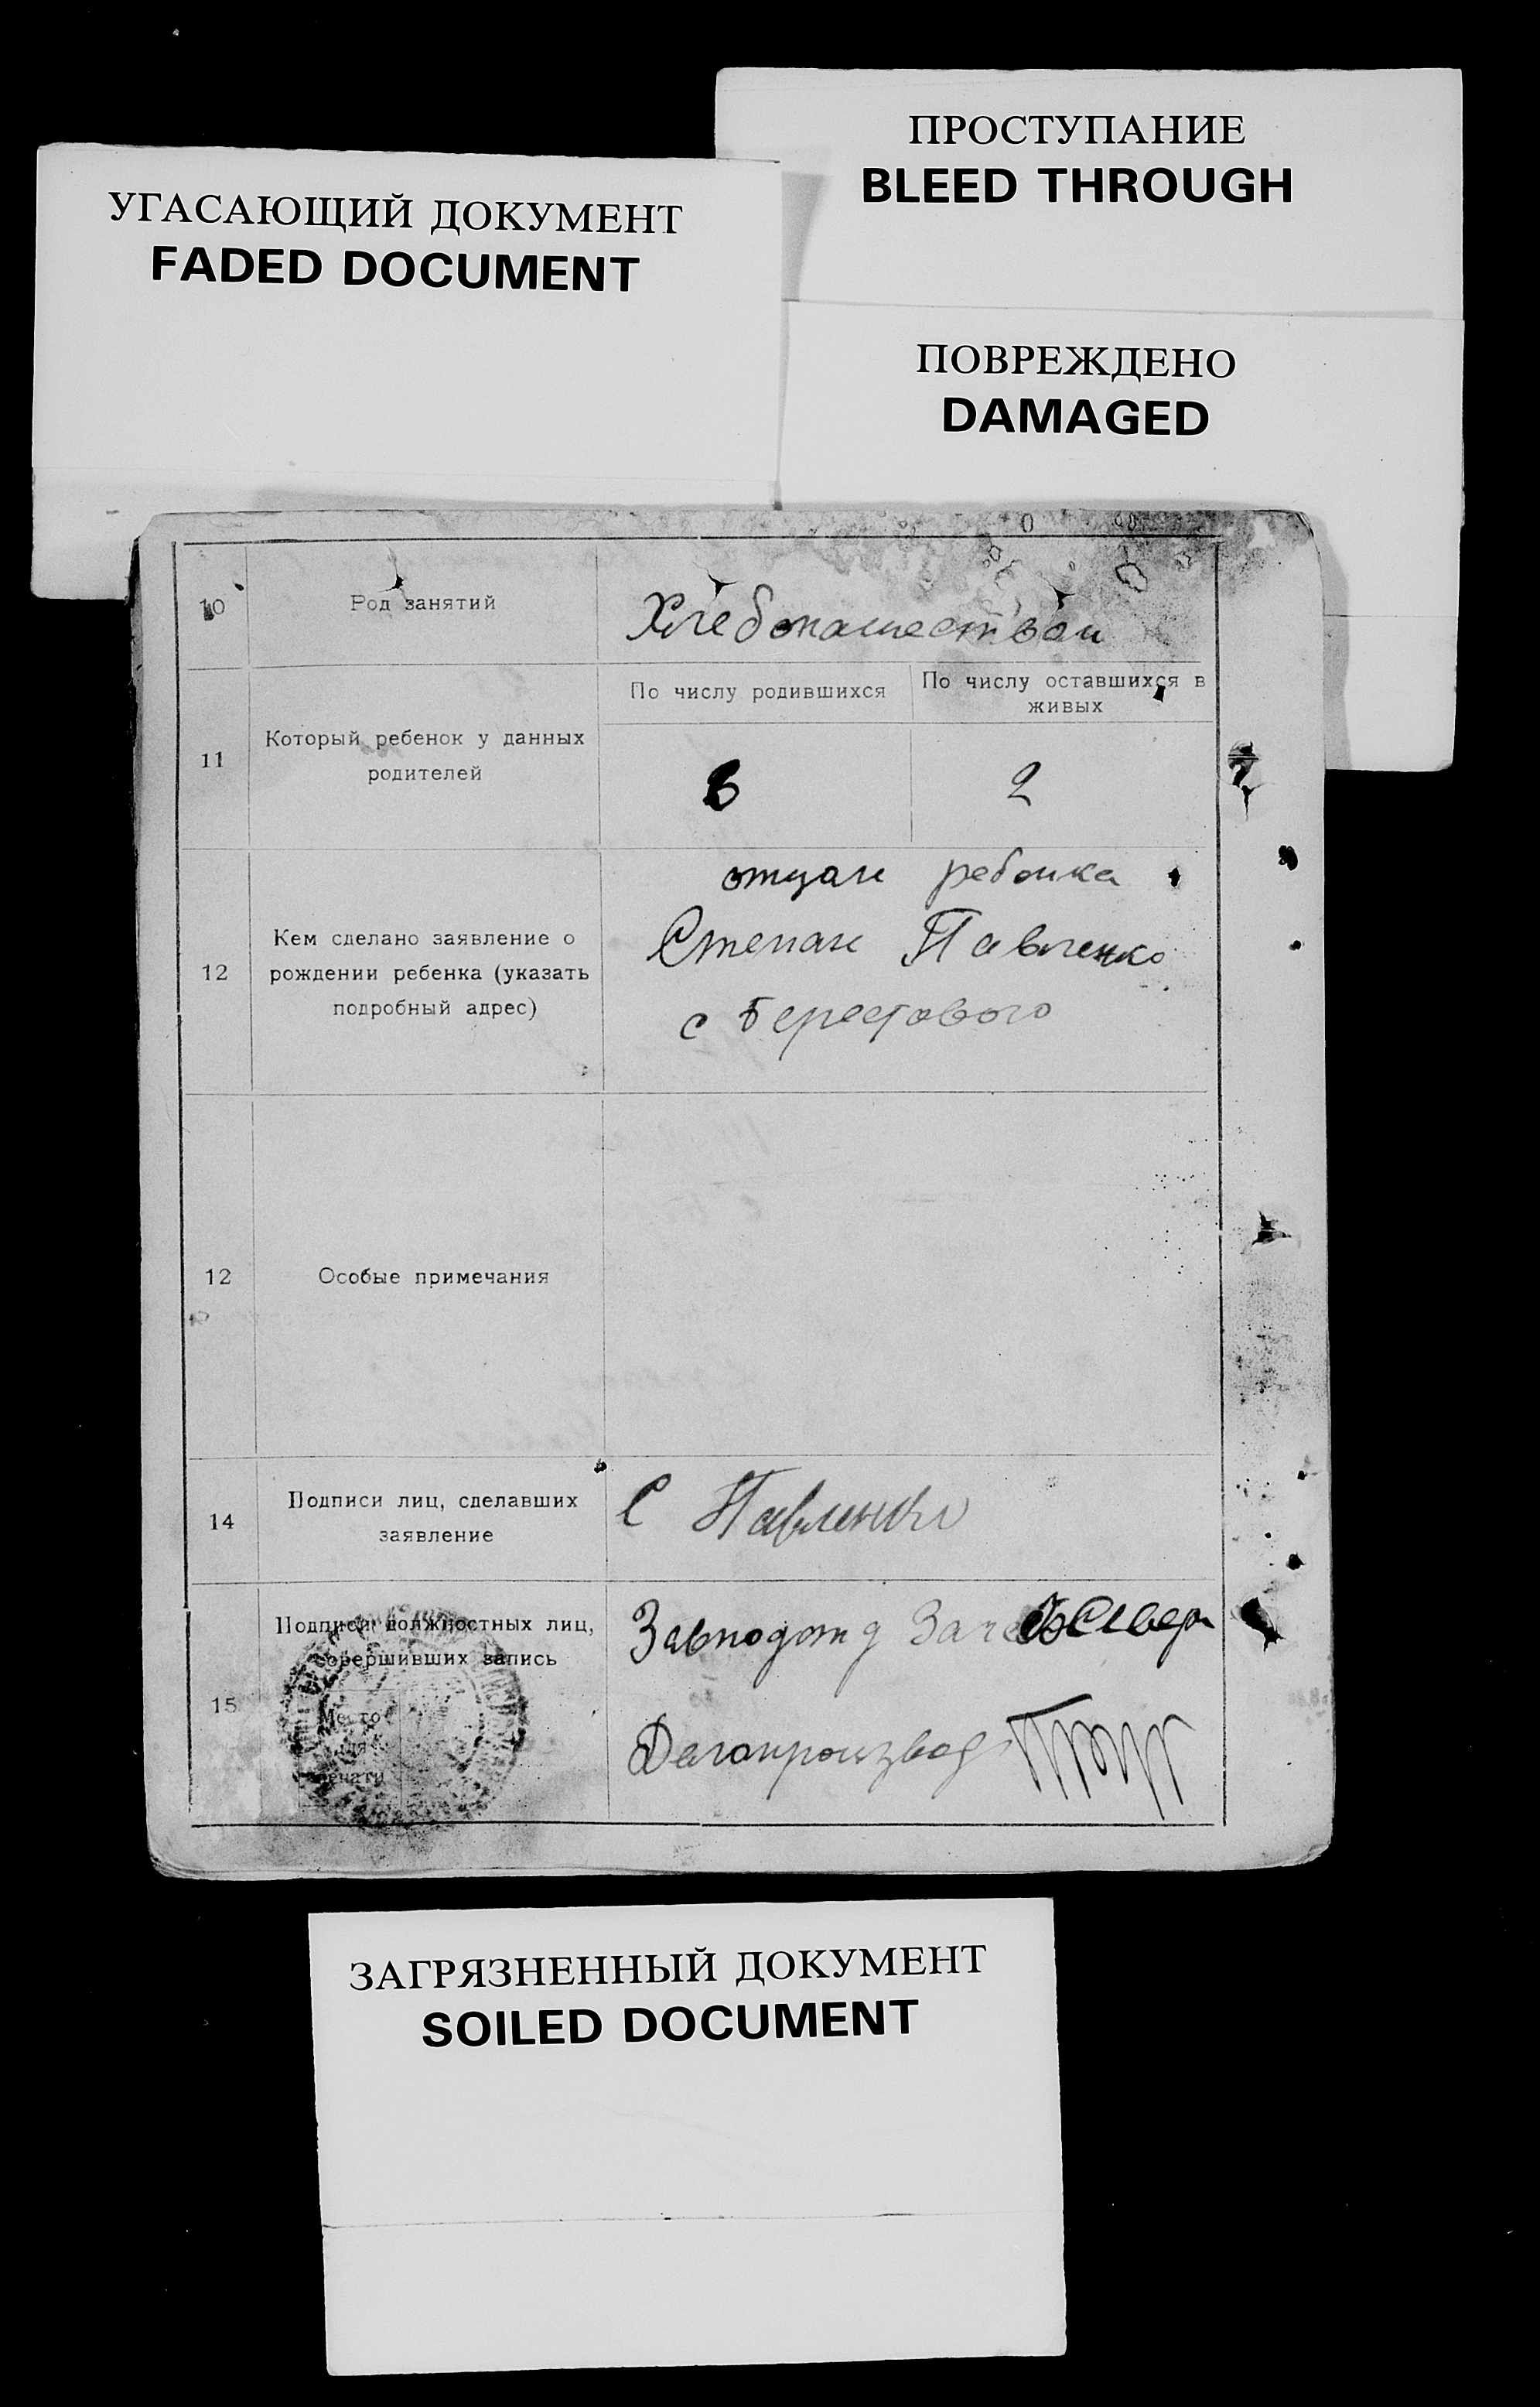 ПРОСТУПАНИЕ
BLEED THROUGH
УГАСАЮЩИЙ ДОКУМЕНТ
FADED DOCUMENT
ПОВРЕЖДЕНО
DAMAGED
10 Род занятий Хлебопашеством
По числу родившихся По числу оставшихся в
живых
11 Который ребенок у данных
родителей
2
отцом ребенка
Степан Павленко
12 Кем сделано заявление о
рождении ребенка (указать
подробный адрес)
с Берестового
12 Особые примечания
14 Подписи лиц, сделавших
заявление
С Павленко
15 Подписи должностных лиц,
совершивших запись
Место
для
печати
Завподотд
Делопроизвод
ЗАГРЯЗНЕННЫЙ ДОКУМЕНТ
SOILED DOCUMENT